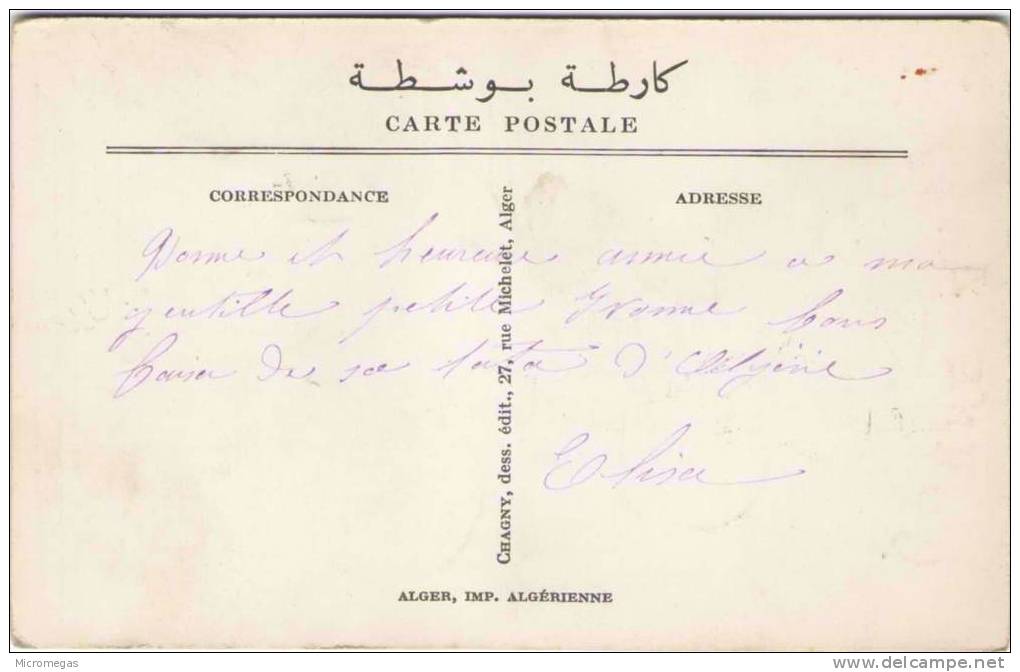 كارطة بوشطة
CARTE POSTALE
CORRESPONDANCE
ADRESSE
Bonne et heureuse année a ma
gentille petite Yvonne bons
baiser de sa tata d'Algérie
Elisa
CHAGNY, dess. édit., 27, rue Michelet, Alger
ALGER, IMP. ALGÉRIENNE
Micromegas
delcampe.net